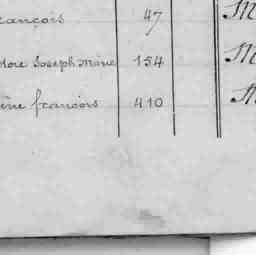 rançois 47 M
dore Joseph Marie 154 M
ène françois 410 M